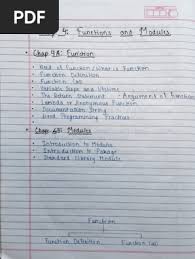 PDF
4: Functions and Modules
Chap 4A: Function
• Need of Function / What is Function
• Function Definition
• Function Call
• Variable Scope and Lifetime
• The Return Statement - Argument of Function
• Lambda or Anonymous Function
• Documentation String
• Good Programming Practices
Modules
• Introduction to Module
• Introduction to Package
• Standard Library Module
Function
Function Definition Function Call